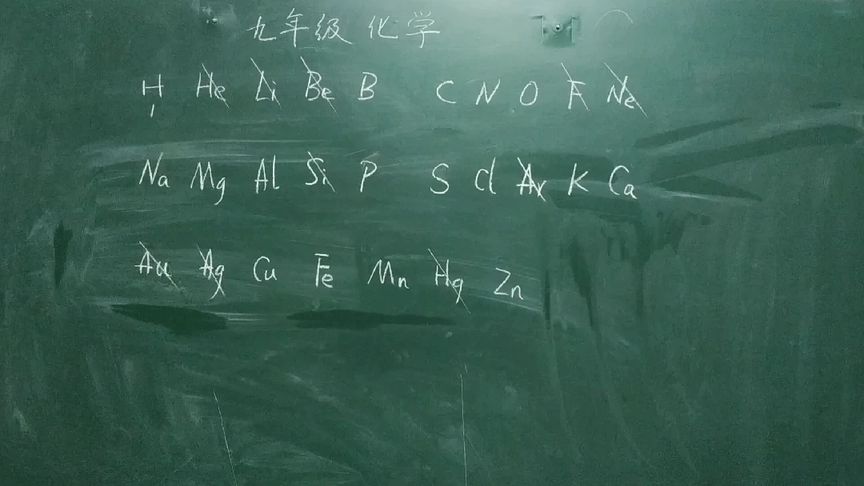 九年级 化学
H He Li Be B C N O F Ne
Na Mg Al Si P S Cl Ar K Ca
Au Ag Cu Fe Mn Hg Zn